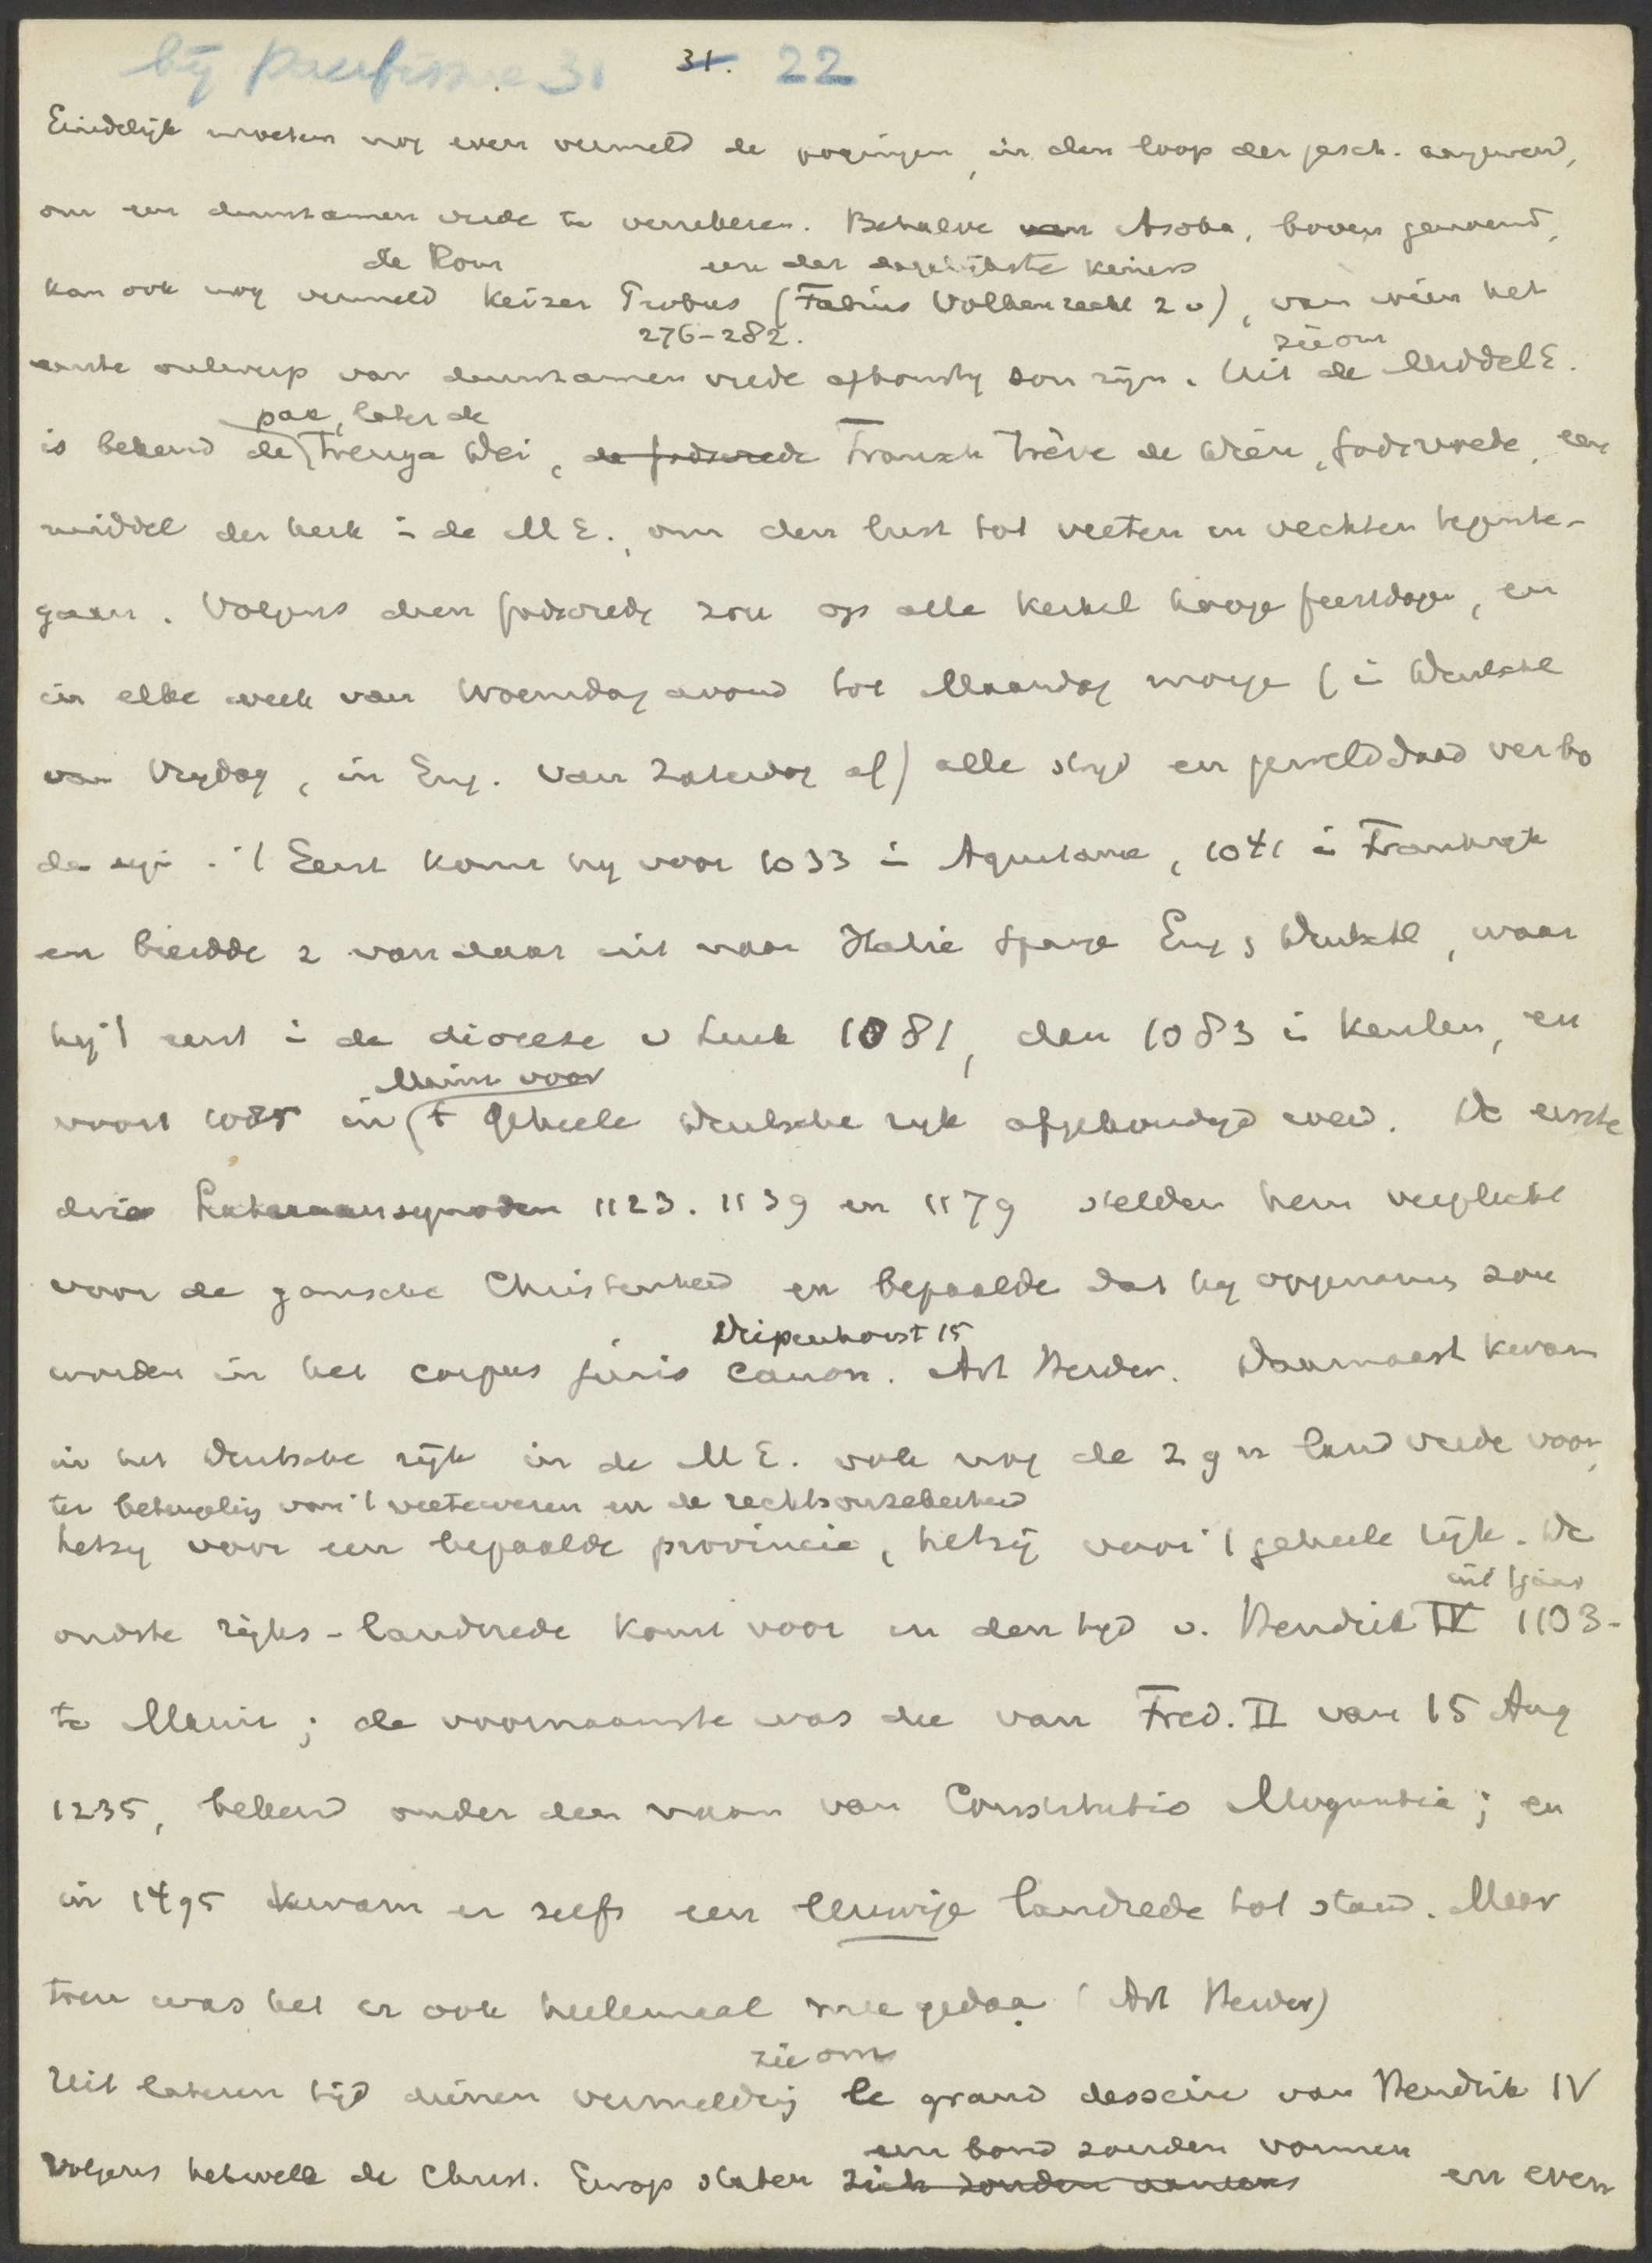 bij pacifisme 31 31. 22
Eindelijk moeten nog even vermeld de pogingen, in den loop der gesch. aangewend,
om een duurzamen vrede te verzekeren. Behalve van Asoka, boven genoemd,
de Rom een der edelste keizers
kan ook nog vermeld Keizer Probus (Fabius Volkenrecht 20), van wien het
276-282. zie om
eerste ontwerp van duurzamen vrede afkomstig zou zijn. Uit de Middel E.
pax, later de
is bekend de Treuga Dei, de godsvrede Fransch Trève de Dieu, godsvrede, een
middel der kerk i de M E., om den lust tot veeten en vechten tegen te-
gaan. Volgens dien godsvrede zou op alle kerkel hooge feestdagen, en
in elke week van Woensdag avond tot Maandag morge (i Deutschl
van Vrydag, in Eng. van Zaterdag af) alle stryd en gewelddaad verbo
de zyn. 't Eerst komt hy voor 1033 i Aquitanie, 1041 i Frankryk
en breidde z van daar uit naar Italie Spanje Eng & Deutschl, waar
hy 't eerst i de diocese v Luik 1081, dan 1083 i Keulen, en
Mainz voor
voorts 1085 in t geheele Deutsche ryk afgekondigd werd. De eerste
drie Lateraansynoden 1123. 1139 en 1179 stelden hem verplicht
voor de gansche Christenheid en bepaalde dat hy opgenomen zou
Diepenhorst 15
worden in het corpus juris canon. Art Herder. Daarnaast kwam
in het Deutsche rijk in de M E. ook nog de z g n landvrede voor,
ter beteugeling van 't veetewezen en de rechtsonzekerheid
hetzy voor een bepaalde provincie, hetzij voor 't geheele rijk. De
uit 't jaar
oudste rijks-landvrede komt voor in den tyd v. Hendrik IV 1103-
te Mainz; de voornaamste was die van Fred. II van 15 Aug
1235, bekend onder den naam van Constitutio Moguntia; en
in 1495 kwam er zelfs een eeuwige landvrede tot stand. Maar
toen was het er ook heelemaal mee gedaa (Art Herder)
zie om
Uit lateren tijd dienen vermelding le grand dessein van Hendrik IV
een bond zouden vormen
Volgens hetwelk de Christ. Europ staten zich zouden en even